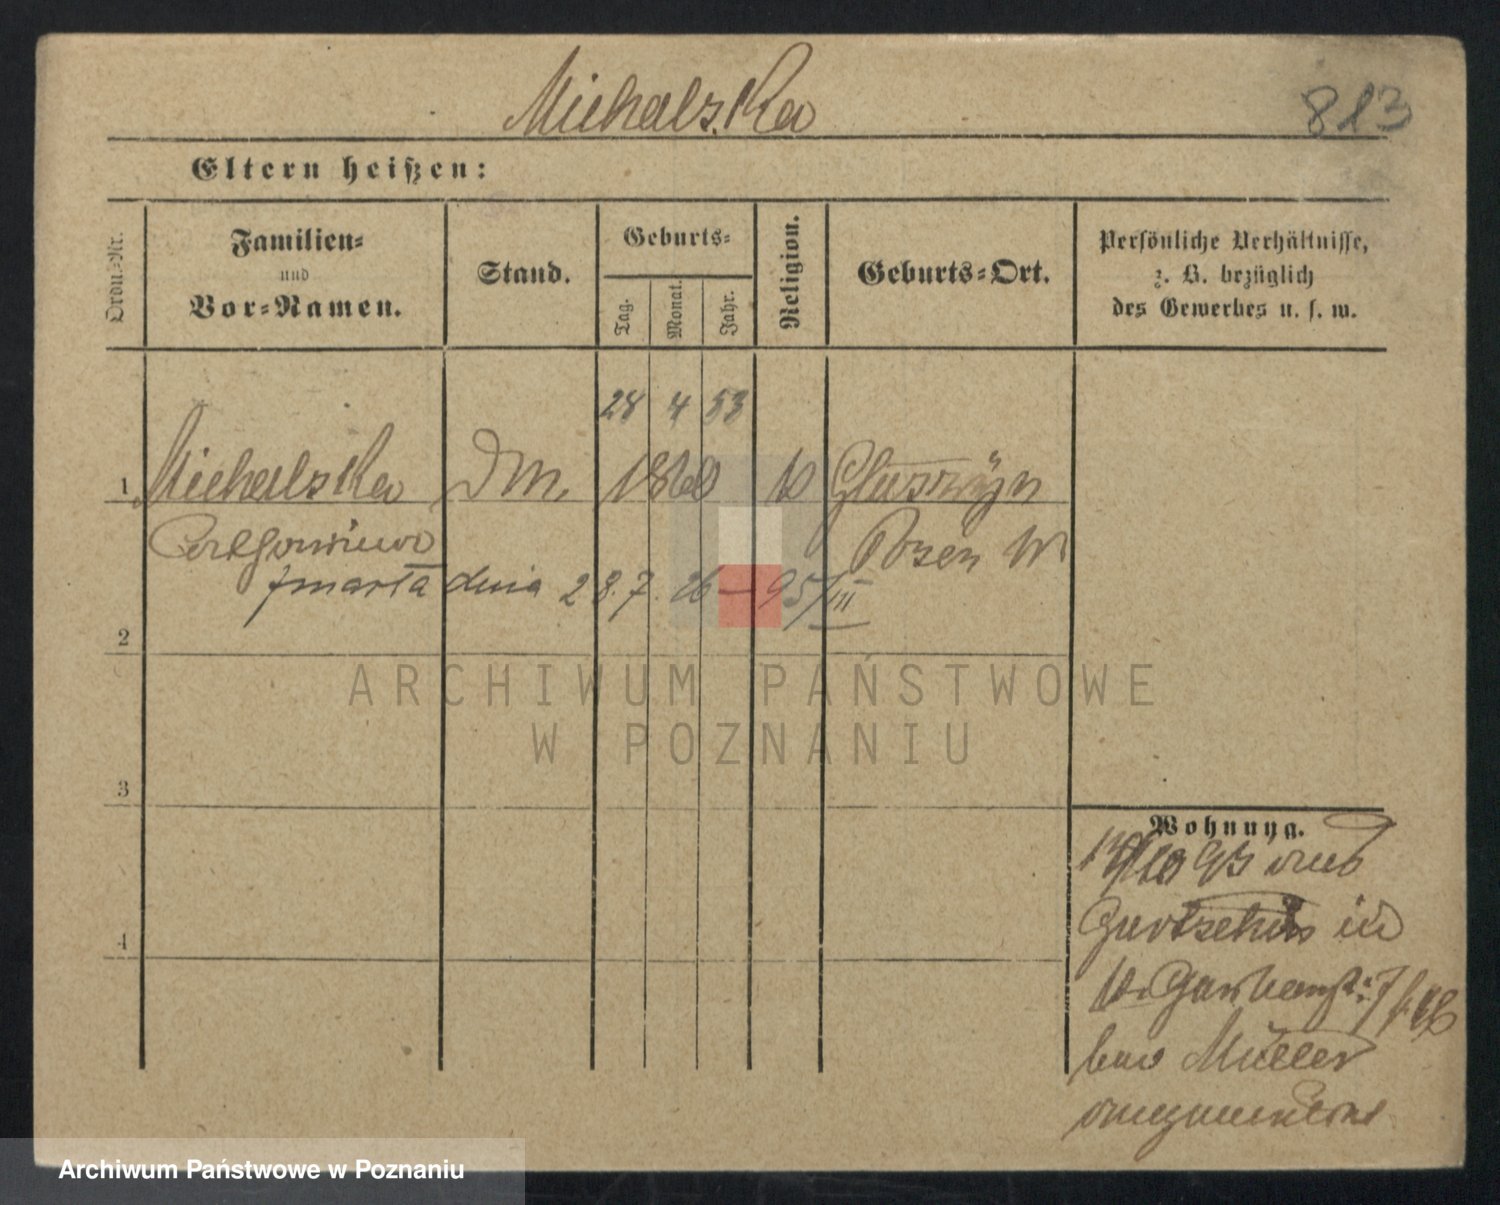 Michalska
813
Eltern heißen:
Ordn.-Nr.
Familien-
und
Vor-Namen.
Stand.
Geburts-
Tag.
Monat.
Jahr.
Religion.
Geburts-Ort.
Persönliche Verhältnisse,
z. B. bezüglich
des Gewerbes u. s. w.
28 4 53
1 Michalska DM. 1860 Gluszyn
Posen W
zmarła dnia 28.7.26 — 95/III
2
3
4
Wohnung.
93 aus
Gurtschin in
bei Müller
angemeldet
ARCHIWUM PAŃSTWOWE
W POZNANIU
Archiwum Państwowe w Poznaniu